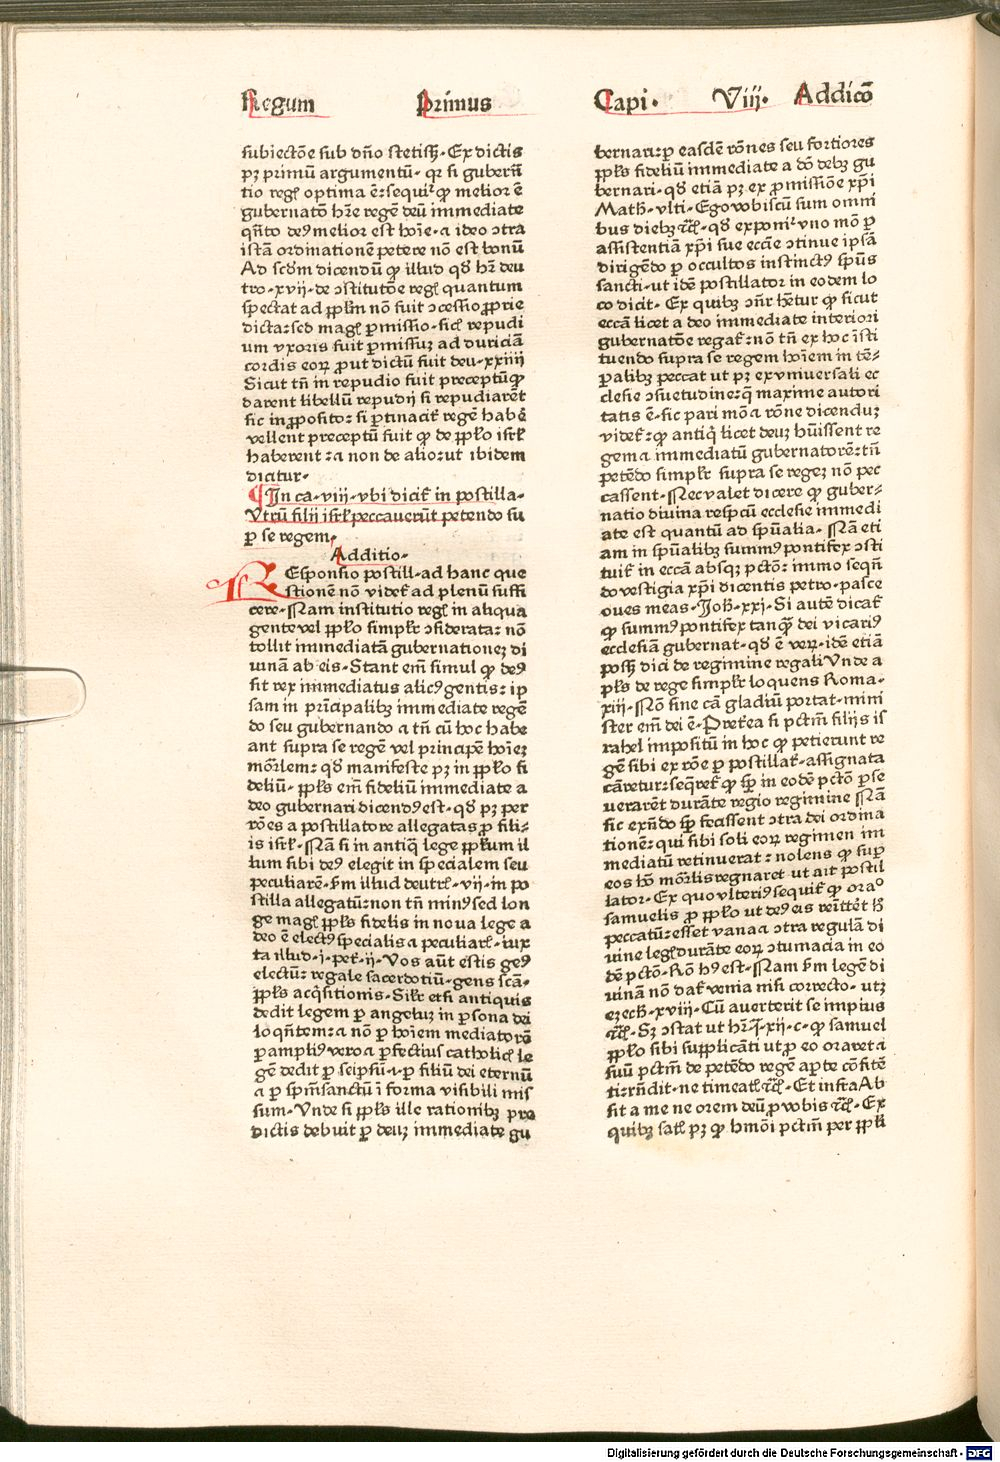 Regum Primus Capi. Viij. Addicō
subiectōe sub dño stetisꝫ. Ex dictis
pꝫ primū argumentū. qꝛ si gubernͣ
tio regꝭ optima ē: sequiᵗ ꝙ melior ē
gubernatō hr̄e regē deū immediate
qñto deꝰ melior est hoīe. ⁊ ideo ↄtra
istā ordinationē petere nō est bonū
Ad scd̓m dicendū ꝙ illud qd̓ hꝛ̄ deu
tro. xvij. de ↄstitutōe regꝭ quantum
spectat ad ꝓpłm nō fuit ↄcessio ꝓprie
dicta: sed magꝭ ꝑmissio. sicꝭ repudi
um vxoris fuit ꝑmissuꝫ ad duriciā
cordis eoꝝ ꝓut dictū fuit deu. xxiiij
Sicut tñ in repudio fuit preceptū ꝙ
darent libellū repudij si repudiarēt
sic in ꝓposito: si ꝑtinacit̄ regē habē
vellent preceptū fuit ꝙ de ꝓpło isrł
haberent: ⁊ non de alio: ut ibidem
dicitur.
¶ In ca. viij. vbi dicit̄ in postilla.
Vtrū filij isrł peccauerūt petendo su
ꝑ se regem.
Additio.
REsponsio postill. ad hanc que
stionē nō videt̄ ad plenū suffi
cere. Nam institutio regꝭ in aliqua
gente vel ꝓpło simplr̄ ↄsiderata: nō
tollit immediatā gubernationeꝫ di
uinam ab eis. Stant em̄ simul ꝙ deꝰ
sit rex immediatus alicꝰ gentis: ip
sam in prīcipalibꝫ immediate regē
do seu gubernando ⁊ tñ cū hoc habe
ant supra se regē vel principē hoīeꝫ
mōrlem: qd̓ manifeste pꝫ in ꝓpło fi
deliū. ꝓpłs em̄ fideliū immediate a
deo gubernari dicendꝰ est. qd̓ pꝫ per
rōes a postillatore allegatas ꝓ fili⸗
is isrł. Nā si in antiq̄ lege ꝓpłum il
lum sibi deꝰ elegit in specialem seu
peculiarē. ẜm illud deutrꝭ. vij. in po
stilla allegatū: non tñ minꝰ sed lon
ge magꝭ ꝓpłs fidelis in noua lege a
deo ē electꝰ specialis ⁊ peculiarꝭ. iux
ta illud. i. pet̄. ij. Vos aūt estis genꝰ
electū: regale sacerdotiū. gens scā.
ꝓpłs acq̄sitionis. Silr̄ etsi antiquis
dedit legem ꝑ angeluꝫ in ꝑsona dei
loqñtem: ⁊ nō ꝑ hoīem mediatorē
ꝑamplius vero ⁊ ꝑfectius catholicꝭ le
gē dedit ꝑ seipsū. i. ꝑ filiū dei eternū
⁊ ꝑ spm̄ sanctū ī forma visibili mis
sum. Vnde si ꝓpłs ille rationibꝫ pre
dictis debuit ꝑ deuꝫ immediate gu
bernari: ꝑ easdē rōnes seu fortiores
ꝓpłs fideliū immediate a dō debꝫ gu
bernari. qd̓ etiā pꝫ ex ꝓmissiōe xp̄i
Math̄. vlti. Ego vobiscū sum omni
bus diebꝫ ⁊cꝭ. qd̓ exponiᵗ vno mō ꝑ
assistentiā xp̄i sue eccīe ↄtinue ipsā
dirigēdo ꝑ occultos instinctꝰ sp̄us
sancti. ut idē postillator in eodem lo
co dicit. Ex quibꝫ ↄñr hētur ꝙ sicut
eccā licet a deo immediate interiori
gubernatōe regat̄: nō tñ ex hoc īsti
tuendo supra se regem hoīem in tē⸗
ꝑalibꝫ peccat ut pꝫ ex vniuersali ec
clesie ↄsuetudine: q̄ maxime autori
tatis ē. sic pari mō ⁊ rōne dicenduꝫ
videt̄: ꝙ antiq̄ licet deuꝫ hūissent re
gem ⁊ immediatū gubernatorē: tñ
petēdo simplr̄ supra se regeꝫ nō pec
cassent. Nec valet dicere ꝙ guber⸗
natio diuina respcū ecclesie immedi
ate est quantū ad sp̄ualia. Nā eti
am in sp̄ualibꝫ summꝰ pontifex ↄsti
tuit̄ in eccā absqꝫ pctō: immo seqñ
do vestigia xp̄i dicentis petro. pasce
oues meas. Joh̄. xxi. Si autē dicat̄
ꝙ summꝰ pontifex tanꝗ̄ dei vicariꝰ
ecclesiā gubernat. qd̓ ē veꝝ. idē etiā
possꝫ dici de regimine regali Vnde a
płs de rege simplr̄ loquens Roma.
xiij. Nō sine cā gladiū portat. mini
ster em̄ dei ē. Pret̄ea si pctm̄ filijs is
rahel impositū in hoc ꝙ petierunt re
gē sibi ex rōe ꝑ postillat̄. assignata
cāretur: seqret̄ ꝙ sꝑ in eodē pctō ꝑse
uerarēt durāte regio regimine Nā
sic exñdo sꝑ fecissent ↄtra dei ordina
tionē: qui sibi soli eoꝝ regimen im
mediatū retinuerat: nolens ꝙ suꝑ
eos hō mōrlis regnaret ut ait postil
lator. Ex quo vlteriꝰ sequit̄ ꝙ oraᵒ
samuelis ꝓ ꝓpło ut deꝰ eis remittēt hͦ
peccatū: esset vana ⁊ ↄtra regulā di
uine legꝭ durāte eoꝝ ↄtumacia in eo
dē pctō. Rō hꝰ est. Nam ẜm legē di
uinā nō dat̄ venia nisi correcto. utꝫ
ezech̄. xviij. Cū auerterit se impius
⁊cꝭ. Sꝫ ↄstat ut hꝛ̄ .j. xij. c. ꝙ samuel
ꝓpło sibi supplicāti ut ꝓ eo oraret ⁊
suū pctm̄ de petēdo regē aperte cōfitē
ti: rñdit. ne timeatꝭ ⁊cꝭ. Et infra Ab
sit a me ne orem deū ꝓ vobis ⁊cꝭ. Ex
quibꝫ satꝭ pꝫ ꝙ hmōi pctm̄ per ꝓpłi
Digitalisierung gefördert durch die Deutsche Forschungsgemeinschaft - DFG